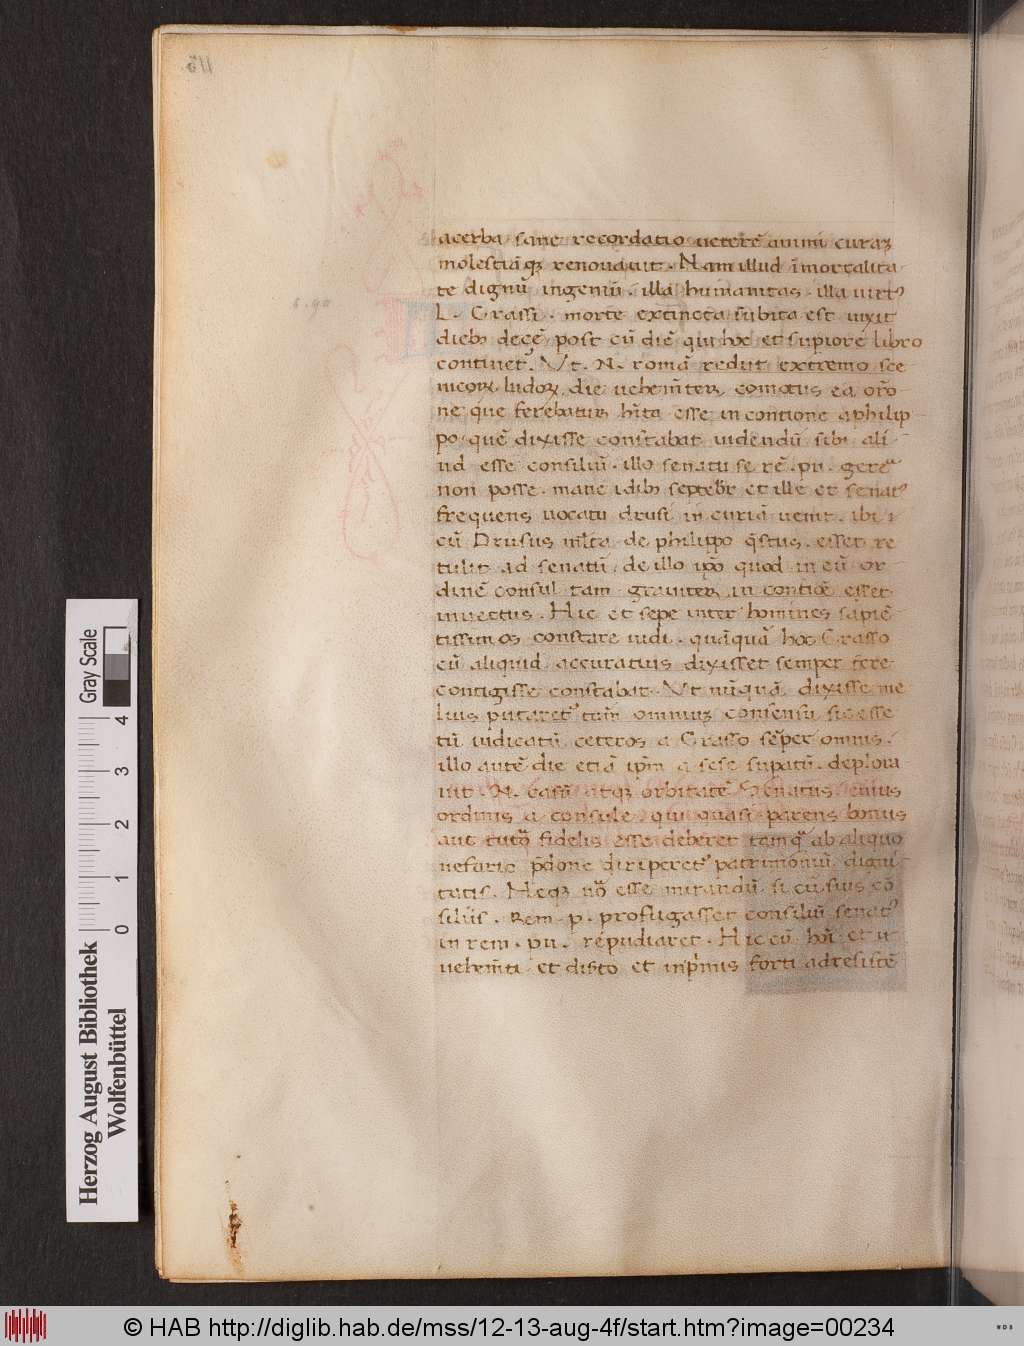 acerba sane recordatio ueterē animi curaꝫ
molestiāqꝫ renouauit. Nam illud īmortalita
te dignū ingeniū. illa humanitas. illa uirtꝰ
L. Crassi. morte extincta subita est uixit
diebꝫ decē post eū diē qui hoc et supiore libro
continetꝰ. Vt. N. romā redijt extremo sce
nicoꝝ ludoꝝ die uehem̄ter comotus ea orō
ne que ferebatur hīta esse in contione a philip
po quē dixisse constabat uidendū sibi ali
ud esse consiliū. illo senatu se rē. pu. gerē
non posse. mane idibꝫ septēbr et ille et senatꝰ
frequens uocatu drusi in curiā uenit. ibi
cū Drusus ml̄ta de philippo q̄stus esset re
tulit ad senatū. de illo ipō quod in eū or
dinē consul tam grauiter in contiōe esset
inuectus. Hic et sepe inter homines sapiē
tissimos constare uidi. quāquā hoc Crasso
cū aliquid accuratius dixisset semper fere
contigisse constabat. Vt nūquā dixisse me
lius putaretꝰ tam̄ omniuꝫ consensu sic esse
tū iudicatū ceteros a Crasso sēper omnis.
illo autē die etiā ipm̄ a sese supatū. deplora
uit. N. casū atqꝫ orbitatē Senatus cuius
ordinis a consule qui quasi parens bonus
aut tutor fidelis esse deberet tamq̄ ab aliquo
nefario p̄done diriperetꝰ patrimoniū digni
tatis. Neqꝫ uō esse mirandū si cū suis cō
silijs. Rem. p. profugasset consiliū senatꝰ
in rem. pu. repudiaret. Hic cū hōi et u
uehem̄ti et diſto et inp̄mis forti ad resistē
115
Gray Scale
4
3
2
1
0
Herzog August Bibliothek
Wolfenbüttel
© HAB http://diglib.hab.de/mss/12-13-aug-4f/start.htm?image=00234